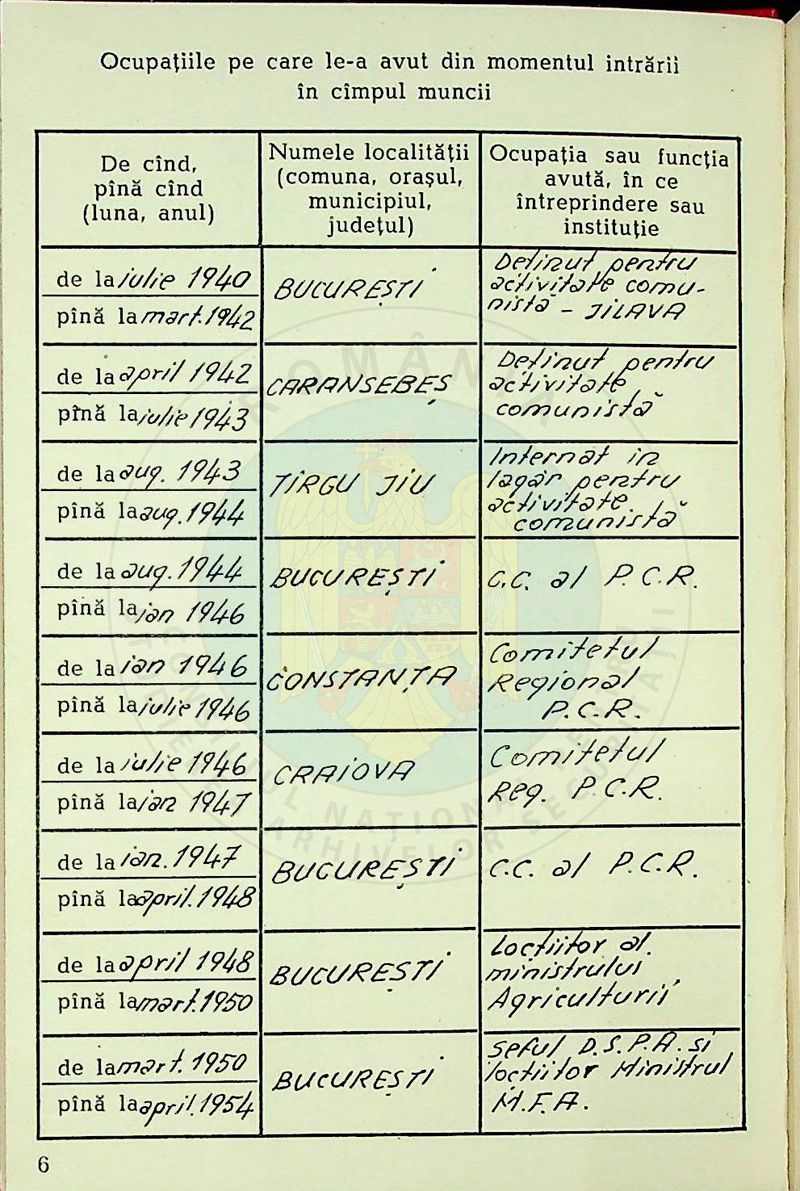 Ocupațiile pe care le-a avut din momentul intrării
în cîmpul muncii
De cînd,
pînă cînd
(luna, anul)
Numele localității
(comuna, orașul,
municipiul,
județul)
Ocupația sau funcția
avută, în ce
întreprindere sau
instituție
de la iulie 1940
pînă la mart. 1942
BUCUREȘTI
Deținut pentru
activitate comu-
nistă - JILAVA
de la april 1942
pînă la iulie 1943
CARANSEBEȘ
Deținut pentru
activitate
comunistă
de la aug. 1943
pînă la aug. 1944
TIRGU JIU
Internat in
lagăr pentru
activitate
comunistă
de la aug. 1944
pînă la ian 1946
BUCUREȘTI
C.C. al P.C.R.
de la ian 1946
pînă la iulie 1946
CONSTANȚA
Comitetul
Regional
P.C.R.
de la iulie 1946
pînă la ian 1947
CRAIOVA
Comitetul
Reg. P.C.R.
de la ian. 1947
pînă la april. 1948
BUCUREȘTI
C.C. al P.C.R.
de la april 1948
pînă la mart. 1950
BUCURESTI
Locțiitor al.
ministrului
Agriculturii
de la mart. 1950
pînă la april. 1954
BUCUREȘTI
Șeful D.S.P.A. si
locțiitor Ministrul
M.F.A.
6
ROMÂNIA
CONSILIUL NAȚIONAL PENTRU STUDIEREA ARHIVELOR SECURITĂȚII